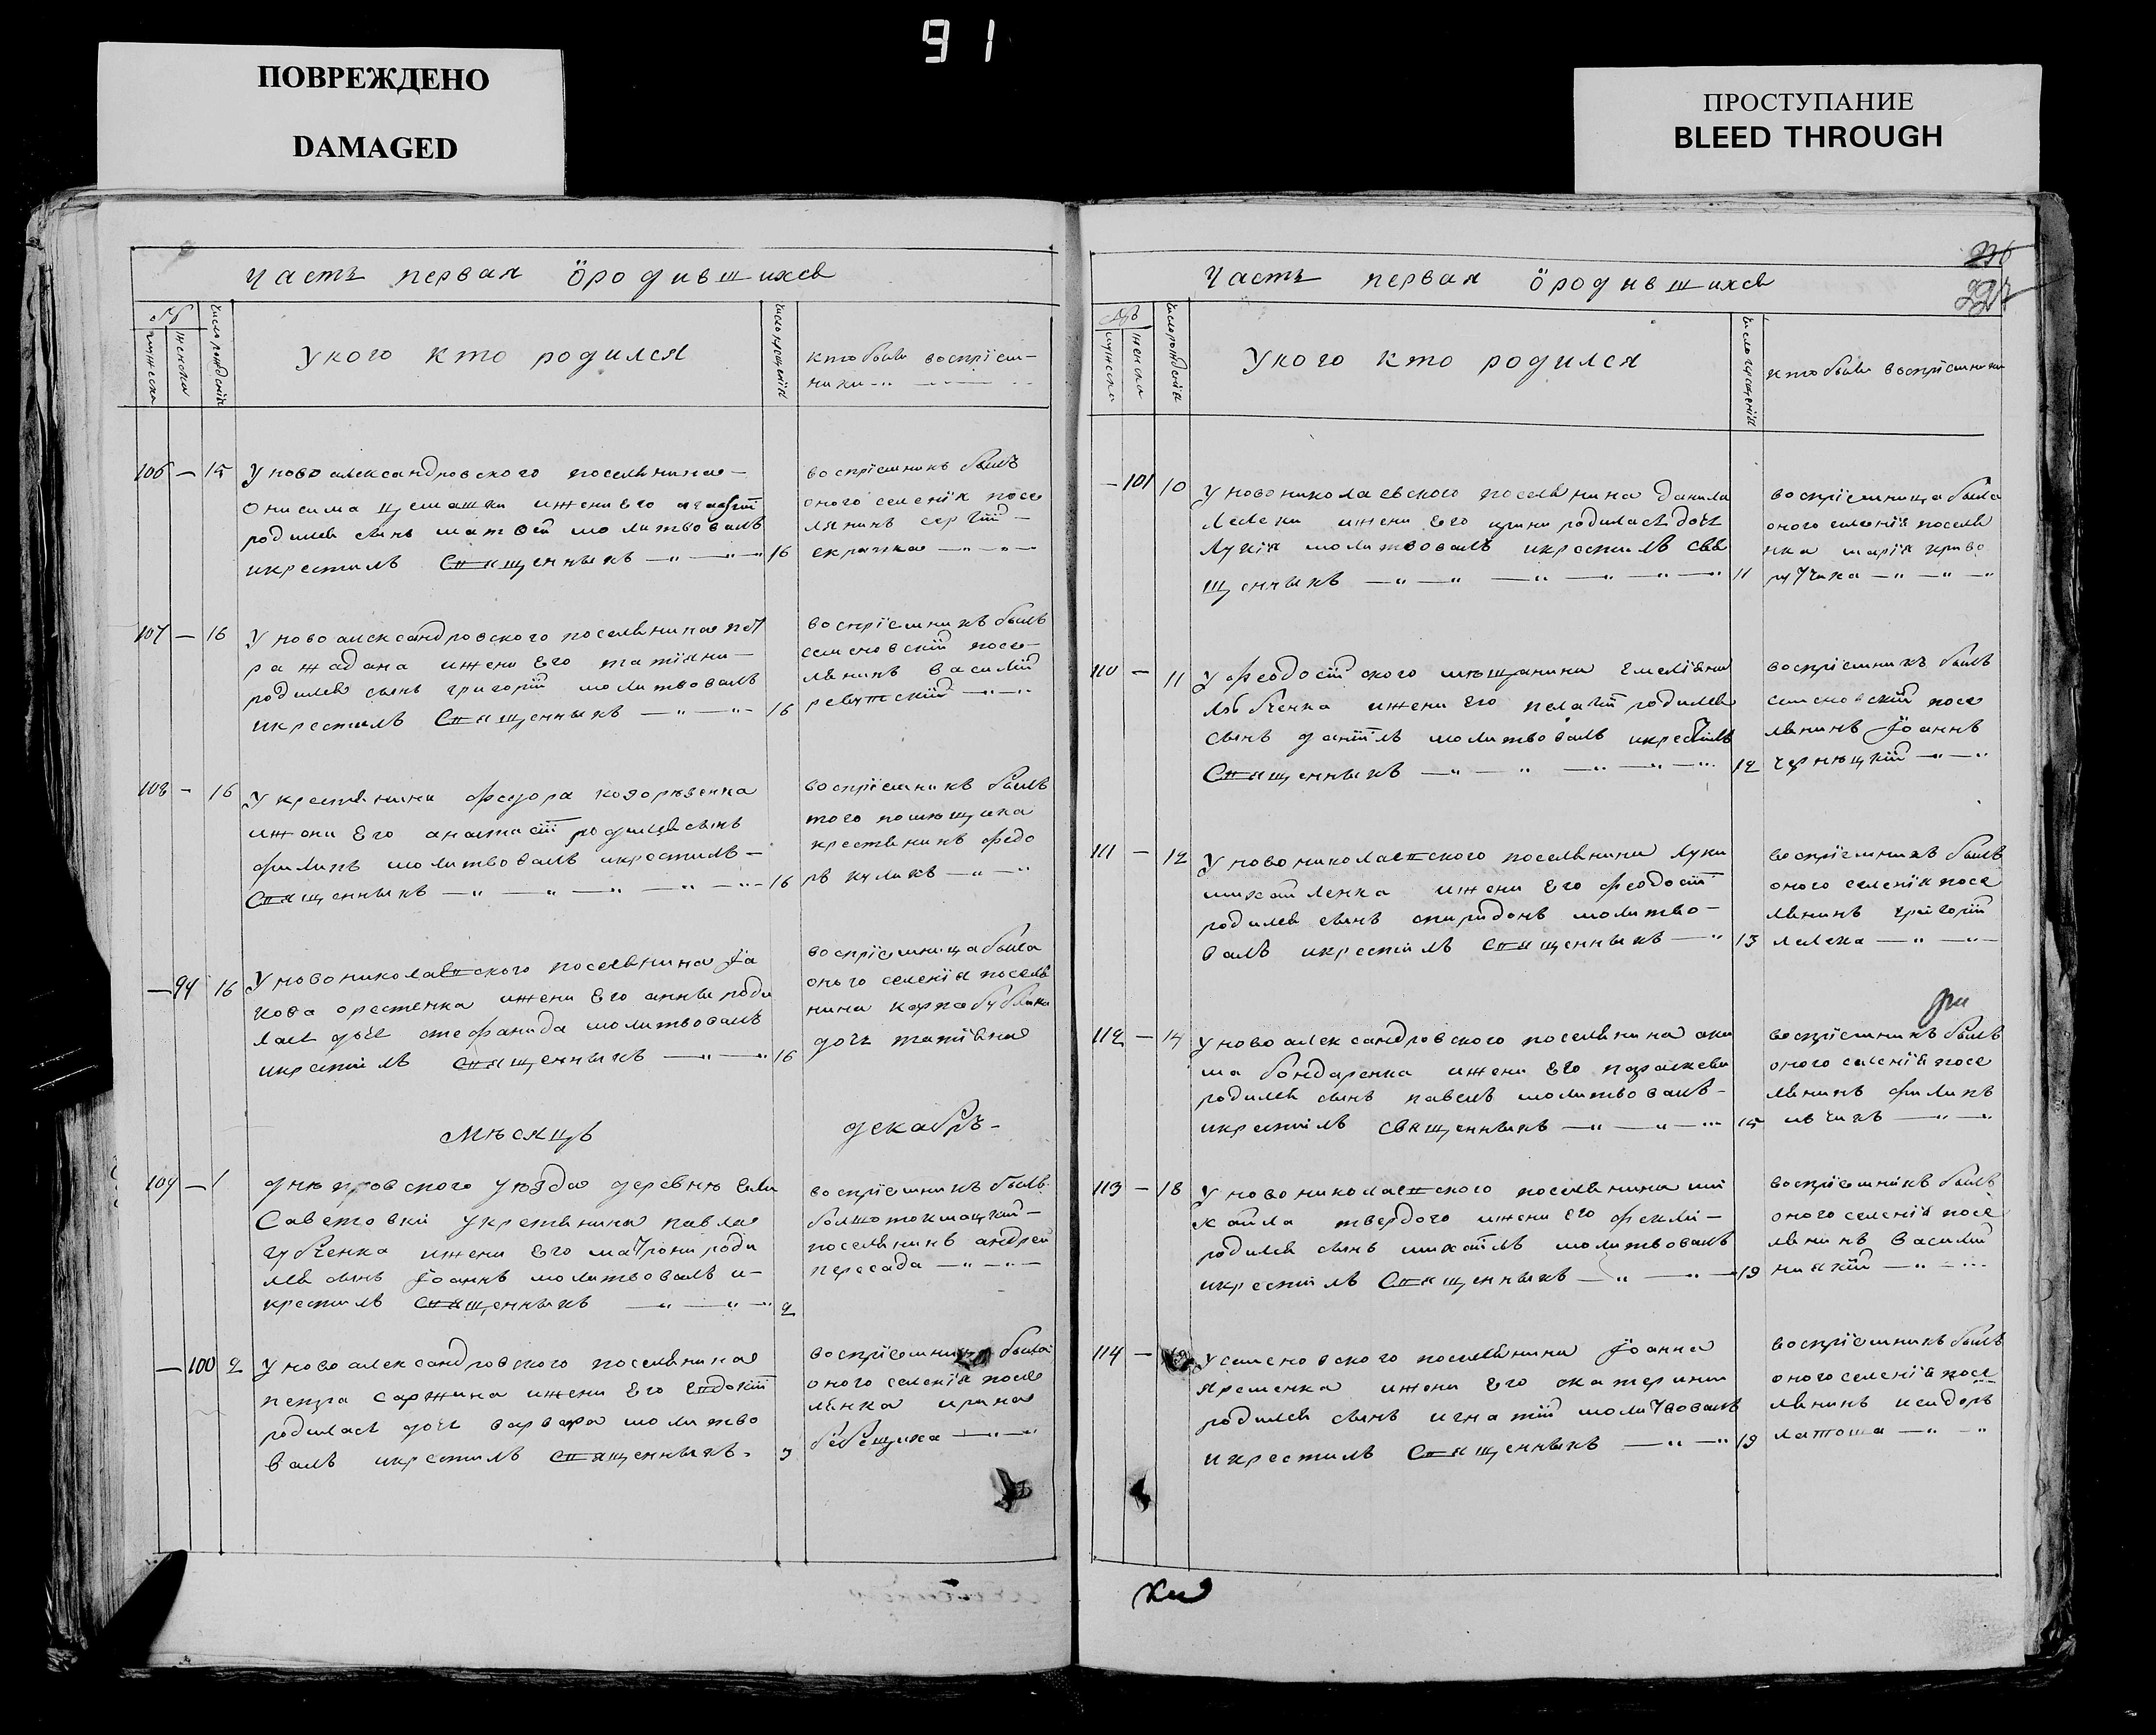 91
ПОВРЕЖДЕНО
DAMAGED
ПРОСТУПАНИЕ
BLEED THROUGH
часть первая ородившихсѧ
№
мужеска
женска
число рождения
У кого кто родился
число крещенїя
кто были воспрїем-
ники
106 — 15 У новоалександровского поселянина
Онисима и жени Его агафїи
родился сынъ матѳей молитвовалъ
и крестилъ Священникъ 16
воспрїемникъ былъ
оного селенїя посе
лянинъ сергїй
107 — 16 У новоалександровского поселянина пет
ра жадана и жени Его татїяни
родился сынъ григорїй молитвовалъ
и крестилъ Священникъ 16
воспрїемникъ былъ
семеновскїй посе-
лянинъ василїй
108 — 16 У крестянина федора
и жони Его анастасїи родился сынъ
филипъ молитвовалъ и крестилъ
Священникъ 16
воспрїемникъ былъ
того помѣщика
крестянинъ федо
ръ куликъ
— 94 16 У новониколаевского поселянина Їа
кова орестенка и жени Его анны роди
лась дочь стефанида молитвовалъ
и крестилъ Священникъ 16
воспрїемница была
оного селенїя поселя
нина карпа бублика
дочь татїяна
Мѣсяцъ декабрь
109 — 1 днѣпровского уѣзда деревнѣ Ели
Саветовки у крестянина павла
губченка и жени Его матрони роди
лся сынъ Їоаннъ молитвовалъ и
крестилъ Священникъ 2
воспрїемникъ былъ
болшотокмацкїй
поселянинъ андрей
пересада
— 100 2 У новоалександровского поселянина
петра саржина и жени Его Евдокїи
родилась дочь варвара молитво
валъ и крестилъ Священникъ 3
воспрїемница была
оного селенїя посе
лянка ирина
часть первая ородившихсѧ
236
№
мужеска
женска
число рожденїя
У кого кто родился
число крещенїя
кто были воспрїемники
— 101 10 У новониколаевского поселянина данила
Лелеки и жени Его ирини родилась дочь
Лукїя молитвовалъ и крестилъ свя
щенникъ 11
воспрїемница была
оного селенїя поселя
нка марїя криво
ручка
110 — 11 У феодосїйского мѣщанина Емелїяна
и жени Его пелагїи родился
сынъ данїилъ молитвовалъ и крестилъ
Священникъ 12
воспрїемникъ былъ
семеновскїй посе
лянинъ Їоаннъ
111 — 12 У новониколаевского поселянина луки
михайленка и жени Его феодосїи
родился сынъ спиридонъ молитво-
валъ и крестилъ Священникъ 13
воспрїемникъ былъ
оного селенїя посе
лянинъ григорїй
лелека
112 — 14 У новоалександровского поселянина аки
ма бондаренка и жени Его параскеви
родился сынъ павелъ молитвовалъ
и крестилъ священникъ 15
воспрїемникъ былъ
оного селенїя посе
лянинъ филипъ
113 — 18 У новониколаевского поселянина ми
хаила твердого и жени Его феклї
родился сынъ михаилъ молитвовалъ
и крестилъ Священникъ 19
воспрїемникъ былъ
оного селенїя посе
лянинъ василїй
114 — У семеновского поселянина Їоанна
яременка и жени Его екатерини
родился сынъ игнатїй молитвовалъ
и крестилъ Священникъ 19
воспрїемникъ былъ
оного селенїя посе
лянинъ исидоръ
латоша